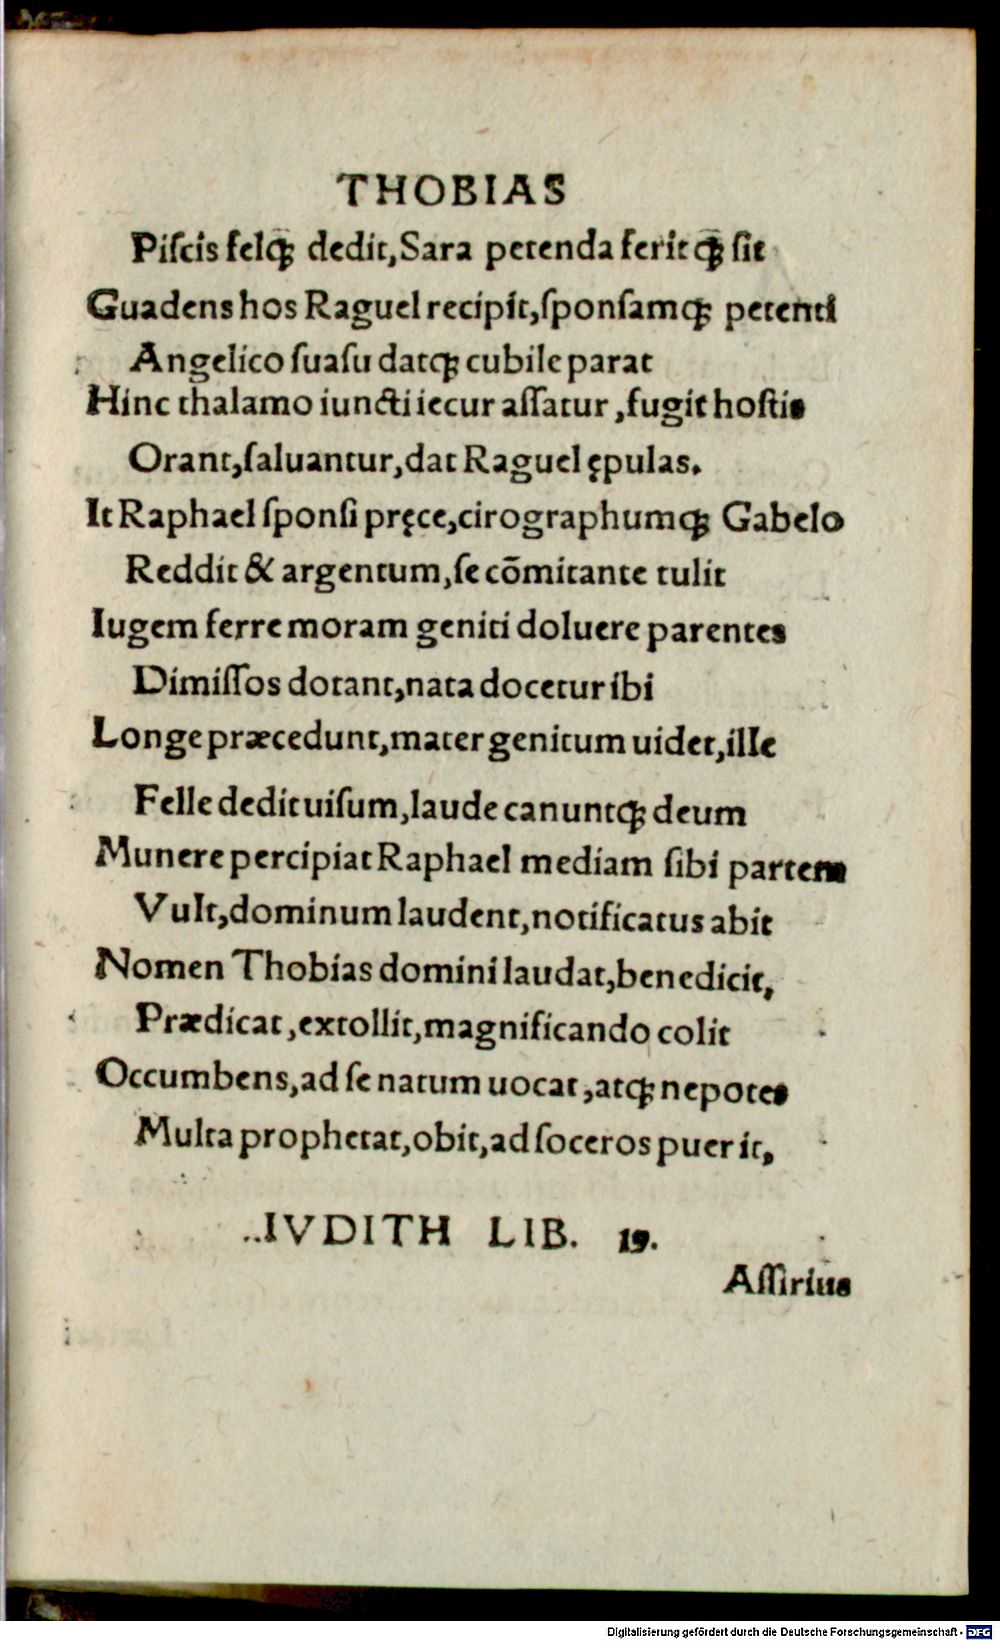 THOBIAS
Piſcis felqꝫ dedit,Sara petenda feritqꝫ ſit
Guadens hos Raguel recipit,ſponſamqꝫ petenti
Angelico ſuaſu datqꝫ cubile parat
Hinc thalamo iuncti iecur aſſatur ,fugit hoſtis
Orant,ſaluantur,dat Raguel ępulas.
It Raphael ſponſi pręce,cirographumqꝫ Gabelo
Reddit & argentum,ſe cōmitante tulit
Iugem ferre moram geniti doluere parentes
Dimiſſos dotant,nata docetur ibi
Longe præcedunt,mater genitum uidet,ille
Felle dedit uiſum,laude canuntqꝫ deum
Munere percipiat Raphael mediam ſibi partem
Vult,dominum laudent,notificatus abit
Nomen Thobias domini laudat,benedicit,
Prædicat,extollit,magnificando colit
Occumbens,ad ſe natum uocat,atqꝫ nepotes
Multa prophetat,obit,ad ſoceros puer it,
..IVDITH LIB. 19.
Aſſirius
Digitalisierung gefördert durch die Deutsche Forschungsgemeinschaft - DFG